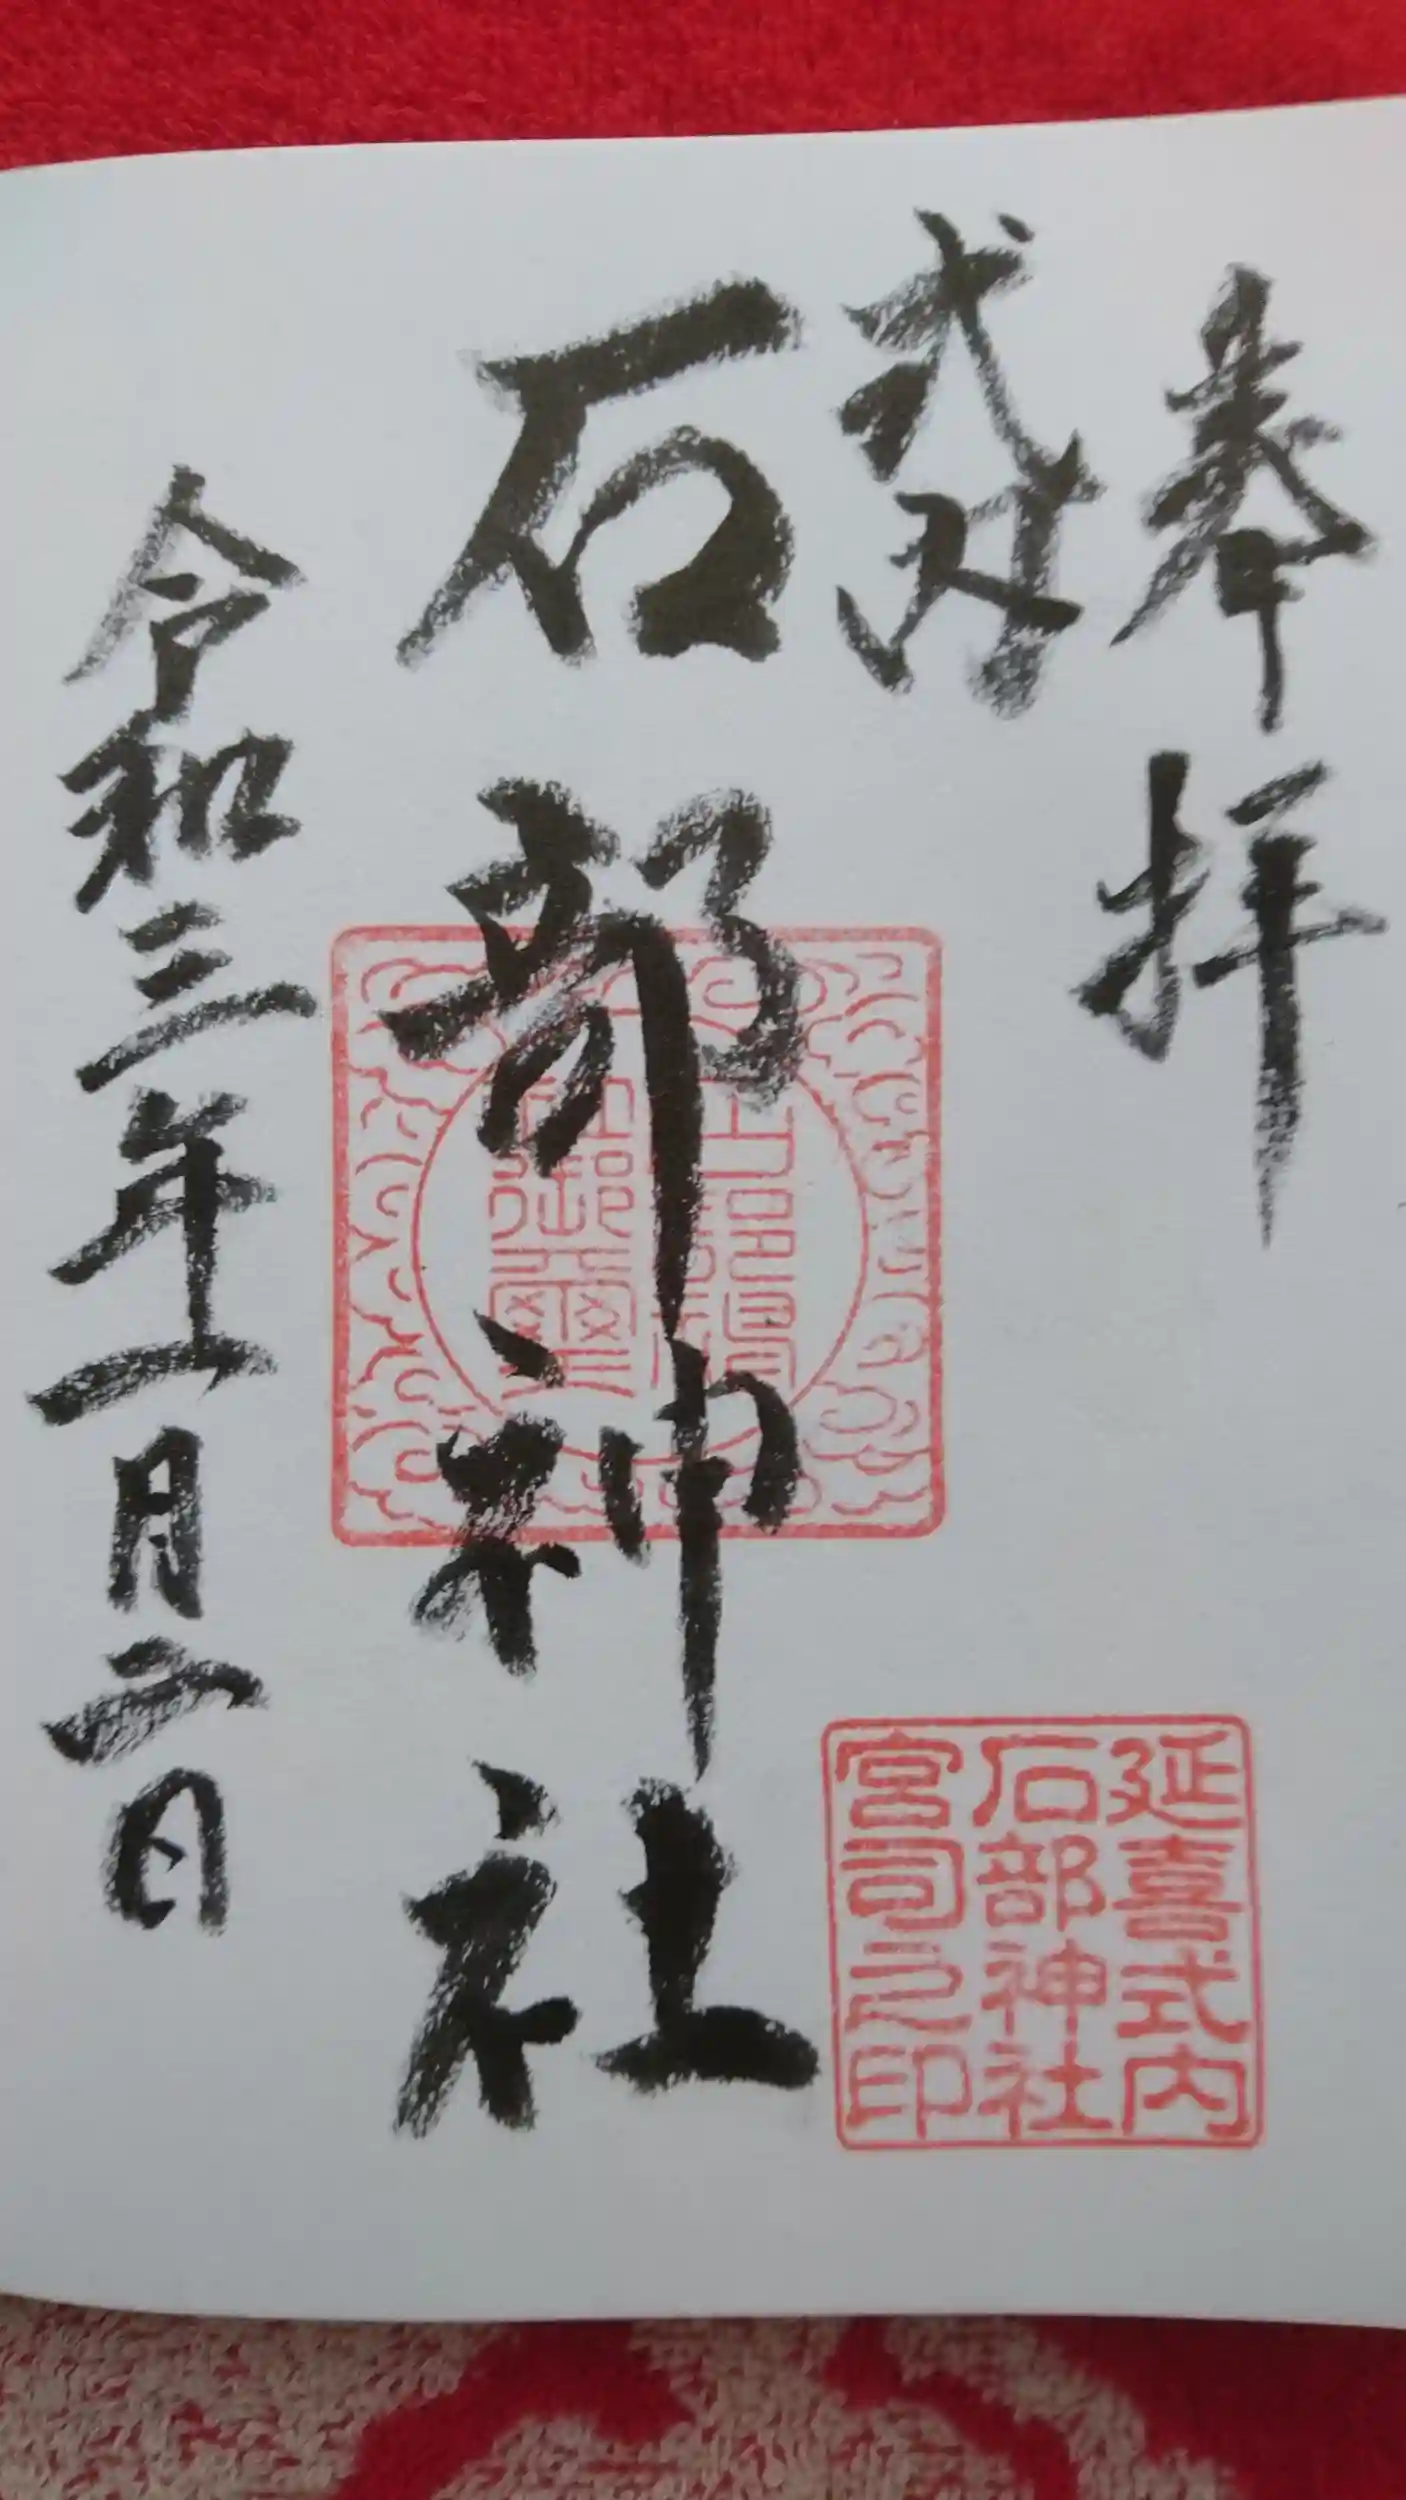 奉拝
式社
石部神社
令和三年一月二日
延喜式内
石部神社
宮司之印